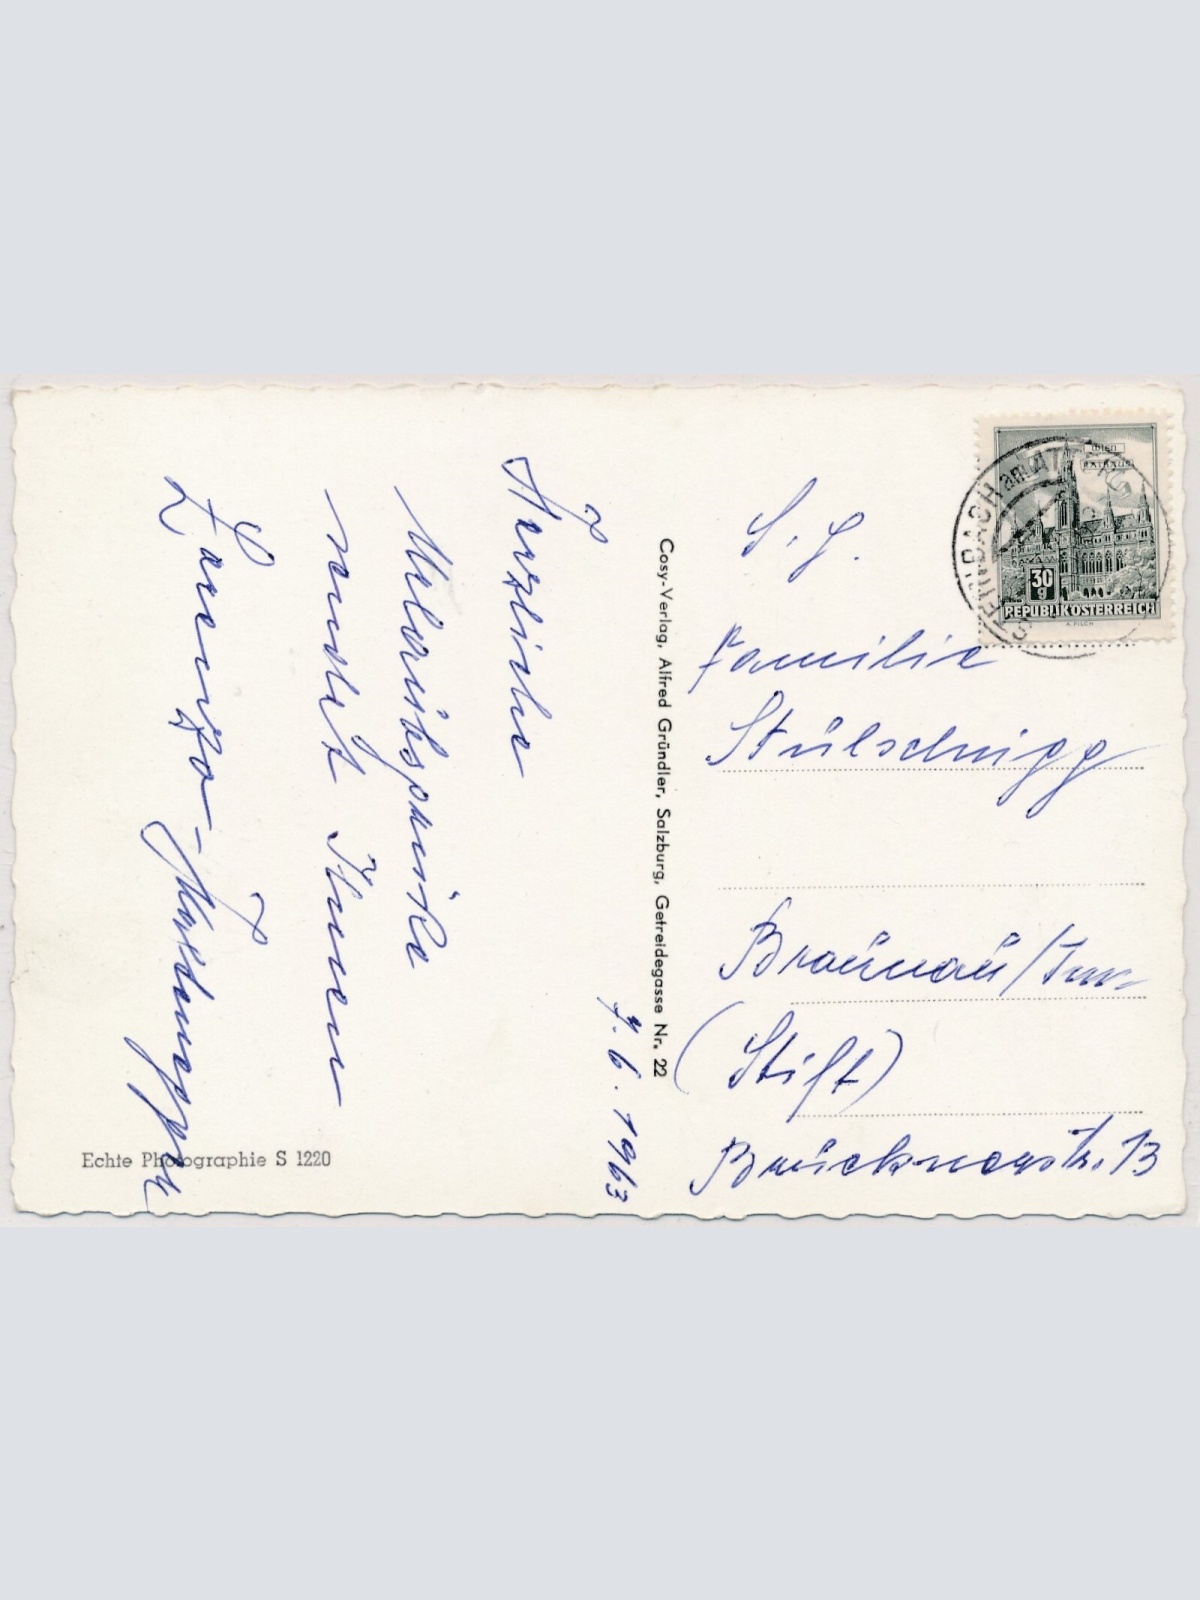 7. 6. 1963
Herzliche
Urlaubsgrüße
sendet Ihnen
Echte Photographie S 1220
Cosy-Verlag, Alfred Gründler, Salzburg, Getreidegasse Nr. 22
WIEN
RATHAUS
30
g
REPUBLIK ÖSTERREICH
A. PILCH
STEINBACH am ATTERSEE
S. g.
Familie
Stülschnigg
Braunau/Inn
(Stift)
Brucknerstr. 13